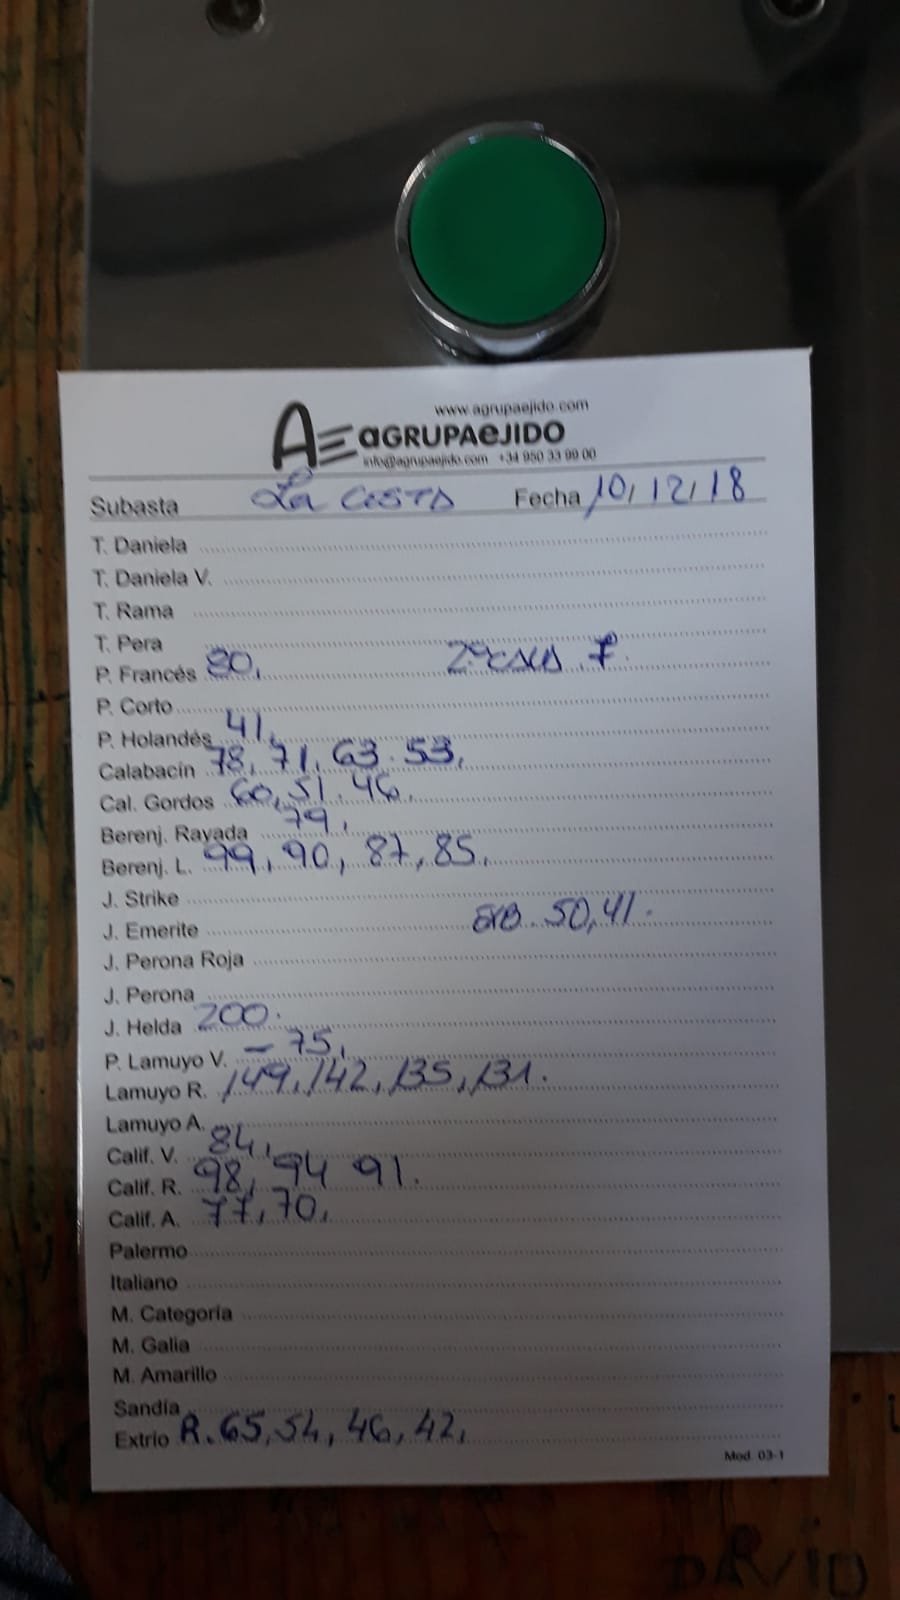 www.agrupaejido.com
AE aGRUPAeJIDO
info@agrupaejido.com +34 950 33 99 00
Subasta La COSTA Fecha 10/12/18
T. Daniela
T. Daniela V.
T. Rama
T. Pera
P. Francés 80, 2ª CALIA F.
P. Corto
P. Holandés 41,
Calabacín 78, 71, 63. 53,
Cal. Gordos 60, 51. 46,
Berenj. Rayada 79,
Berenj. L. 99, 90, 87, 85,
J. Strike
J. Emerite 50, 41.
J. Perona Roja
J. Perona
J. Helda 200.
P. Lamuyo V. - 75,
Lamuyo R. 149, 142, 135, 131.
Lamuyo A.
Calif. V. 84,
Calif. R. 98, 94 91.
Calif. A. 77, 70,
Palermo
Italiano
M. Categoría
M. Galia
M. Amarillo
Sandía
Extrio R. 65, 54, 46, 42,
Mod. 03-1
DAViD